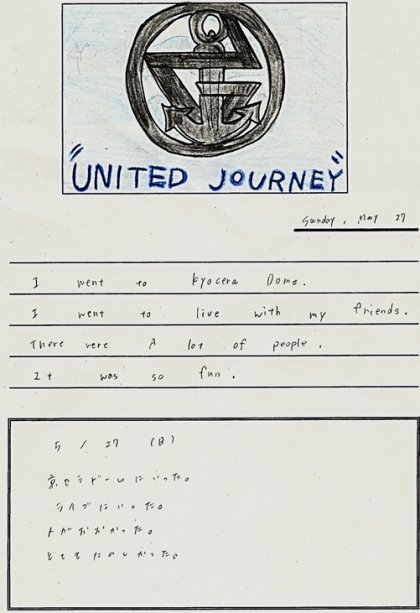 "UNITED JOURNEY"
Sunday, May 27
I went to Kyocera Dome.
I went to live with my friends.
There were A lot of people.
It was so fun.
5 / 27 (日)
京セラドームにいった。
ライブにいった。
人がおおかった。
とてもたのしかった。